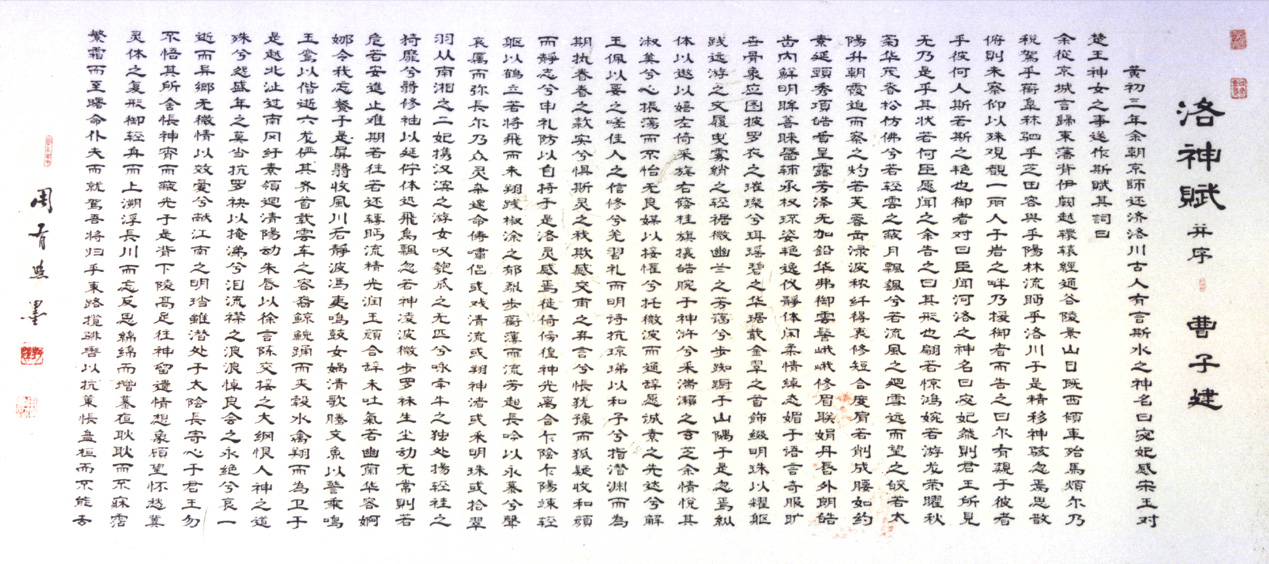 洛神賦 并序 曹子建
黄初三年余朝京师还济洛川古人有言斯水之神名曰宓妃感宋玉对
楚王神女之事遂作斯赋其詞曰
余從京域言歸東藩背伊闕越轘轅經通谷陵景山日既西傾車殆馬煩尔乃
税駕乎蘅皋秣駟乎芝田容與乎陽林流眄乎洛川于是精移神骇忽焉思散
俯則未察仰以殊观覩一丽人于岩之畔乃援御者而告之曰尔有覿于彼者
乎彼何人斯若斯之艳也御者对曰臣聞河洛之神名曰宓妃然則君王所見
无乃是乎其状若何臣愿闻之余告之曰其形也翩若惊鸿婉若游龙荣曜秋
菊华茂春松仿佛兮若轻雲之蔽月飄飖兮若流風之迴雪远而望之皎若太
陽升朝霞迫而察之灼若芙蓉出渌波秾纤得衷修短合度肩若削成腰如约
素延頸秀項皓質呈露芳泽无加鉛华弗御雲髻峨峨修眉联娟丹唇外朗皓
齿内鲜明眸善睐靥辅承权瓌姿艳逸仪静体闲柔情绰态媚于语言奇服旷
世骨象应图披罗衣之璀璨兮珥瑶碧之华琚戴金翠之首飾缀明珠以耀躯
践远游之文履曳雾绡之轻裾微幽兰之芳蔼兮步踟蹰于山隅于是忽焉纵
体以遨以嬉左倚采旄右蔭桂旗攘皓腕于神浒兮采湍濑之玄芝余情悦其
淑美兮心振荡而不怡无良媒以接懽兮托微波而通辞愿诚素之先达兮解
玉佩以要之嗟佳人之信修兮羌習礼而明诗抗琼珶以和予兮指潜渊而為
期执眷眷之款实兮惧斯灵之我欺感交甫之弃言兮怅犹豫而狐疑收和颜
而靜志兮申礼防以自持于是洛灵感焉徙倚傍徨神光离合乍陰乍陽竦轻
躯以鹤立若将飛而未翔践椒涂之郁烈步蘅薄而流芳超長吟以永慕兮聲
哀厲而弥長尔乃众灵杂遝命俦嘯侣或戏清流或翔神渚或采明珠或拾翠
羽从南湘之二妃携汉滨之游女叹匏瓜之无匹兮咏牵牛之独处揚轻袿之
猗靡兮翳修袖以延佇体迅飛凫飄忽若神凌波微步罗袜生尘动无常則若
危若安進止难期若往若还转眄流精光润玉颜含辞未吐氣若幽蘭华容婀
娜令我忘餐于是屏翳收風川后静波冯夷鳴鼓女媧清歌騰文魚以警乘鳴
玉鸾以偕逝六龙俨其齐首载雲车之容裔鲸鯢踊而夹毂水禽翔而為卫于
是越北沚过南冈纡素领迴清陽动朱唇以徐言陈交接之大纲恨人神之道
殊兮怨盛年之莫当抗罗袂以掩涕兮泪流襟之浪浪悼良会之永绝兮哀一
逝而异鄉无微情以效爱兮献江南之明珰雖潜处于太陰長寄心于君王忽
不悟其所舍怅神宵而蔽光于是背下陵高足往神留遗情想象顾望怀愁冀
灵体之复形御轻舟而上溯浮長川而忘反思绵绵而增慕夜耿耿而不寐霑
繁霜而至曙命仆夫而就駕吾将归乎東路揽騑辔以抗策怅盘桓而不能去